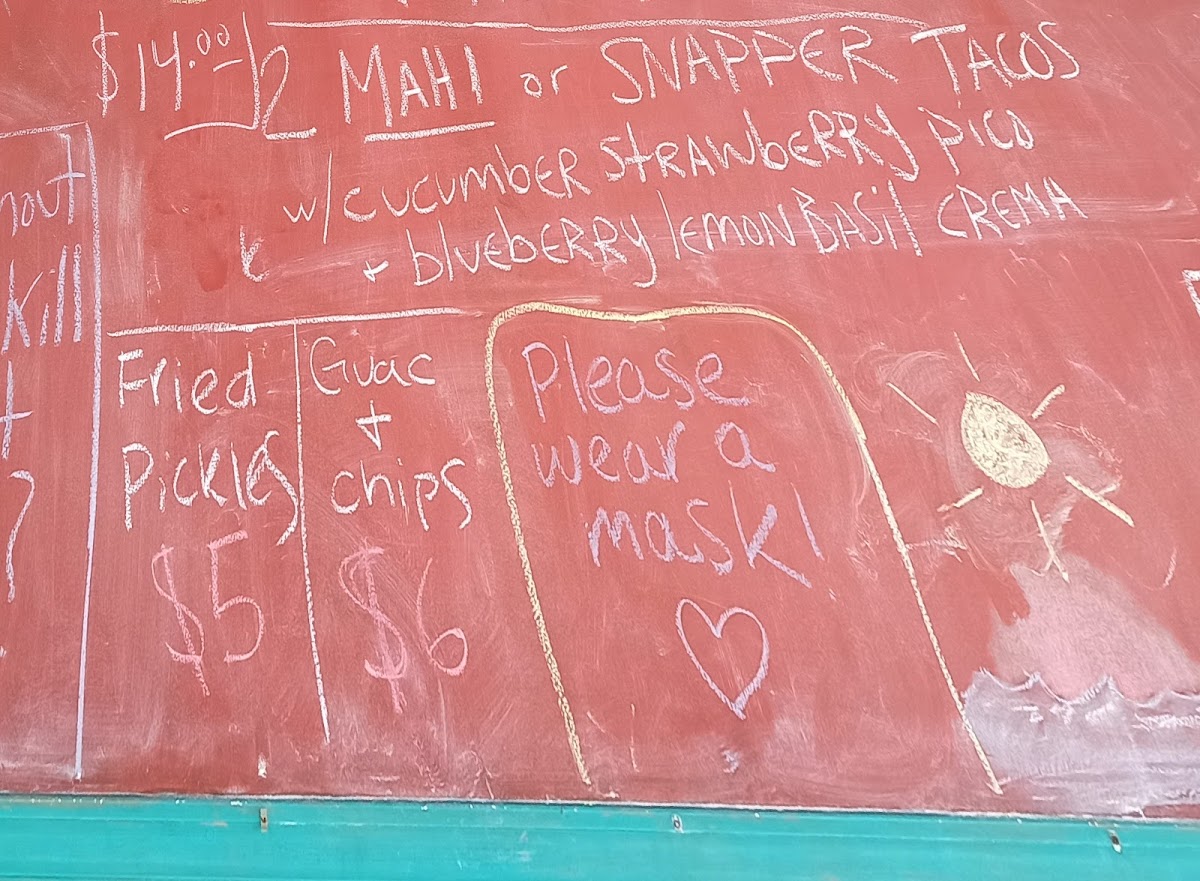 $14.00/2 MAHI or SNAPPER TACOS
w/cucumber STRAWbERRy pico
+ blueberry lemon BASil CREMA
kill
Fried
Pickles
$5
Guac
+
chips
$6
Please
wear a
mask!